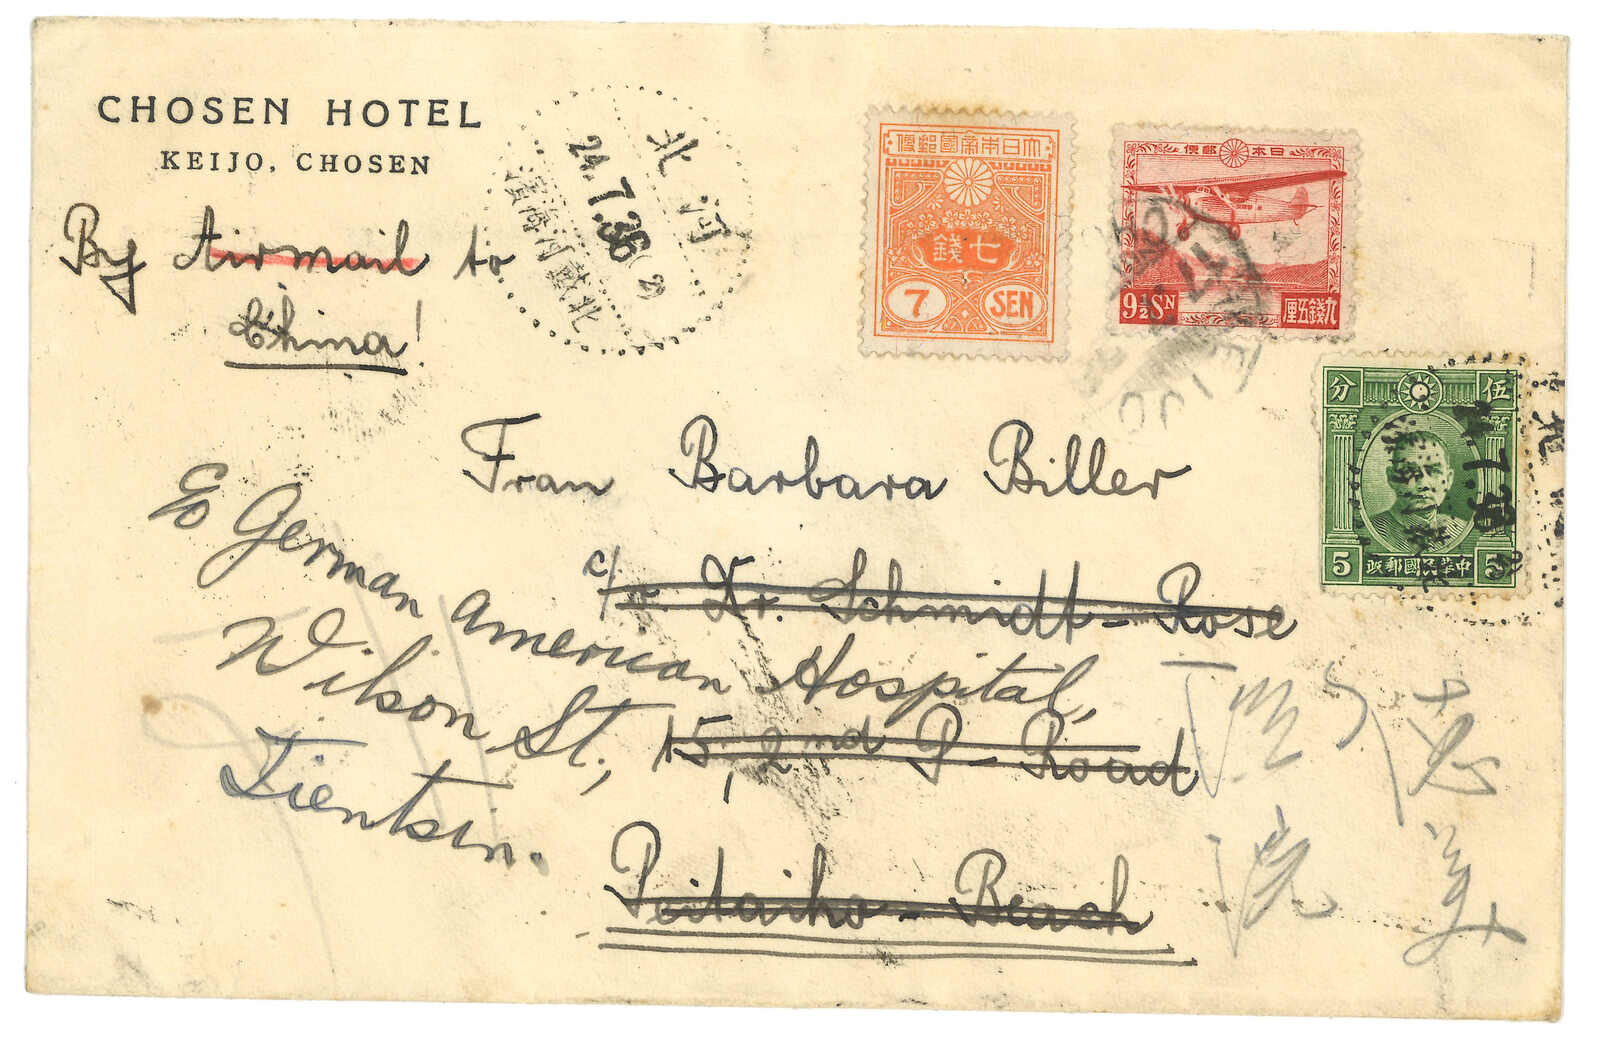 CHOSEN HOTEL
KEIJO, CHOSEN
By Airmail to
China!
北河
24.7.36
(2)
北戴河海濱
大日本帝國郵便
七錢
7 SEN
日本郵便
9½SN
九錢五厘
KEIJO
分 伍
5 中華民國郵政 5
7.36
Frau Barbara Biller
c/o. Dr. Schmidt-Rose
15, 2nd P-Road
Peitaiho-Beach
c/o German American Hospital,
Wilson St.,
Tientsin.
德美